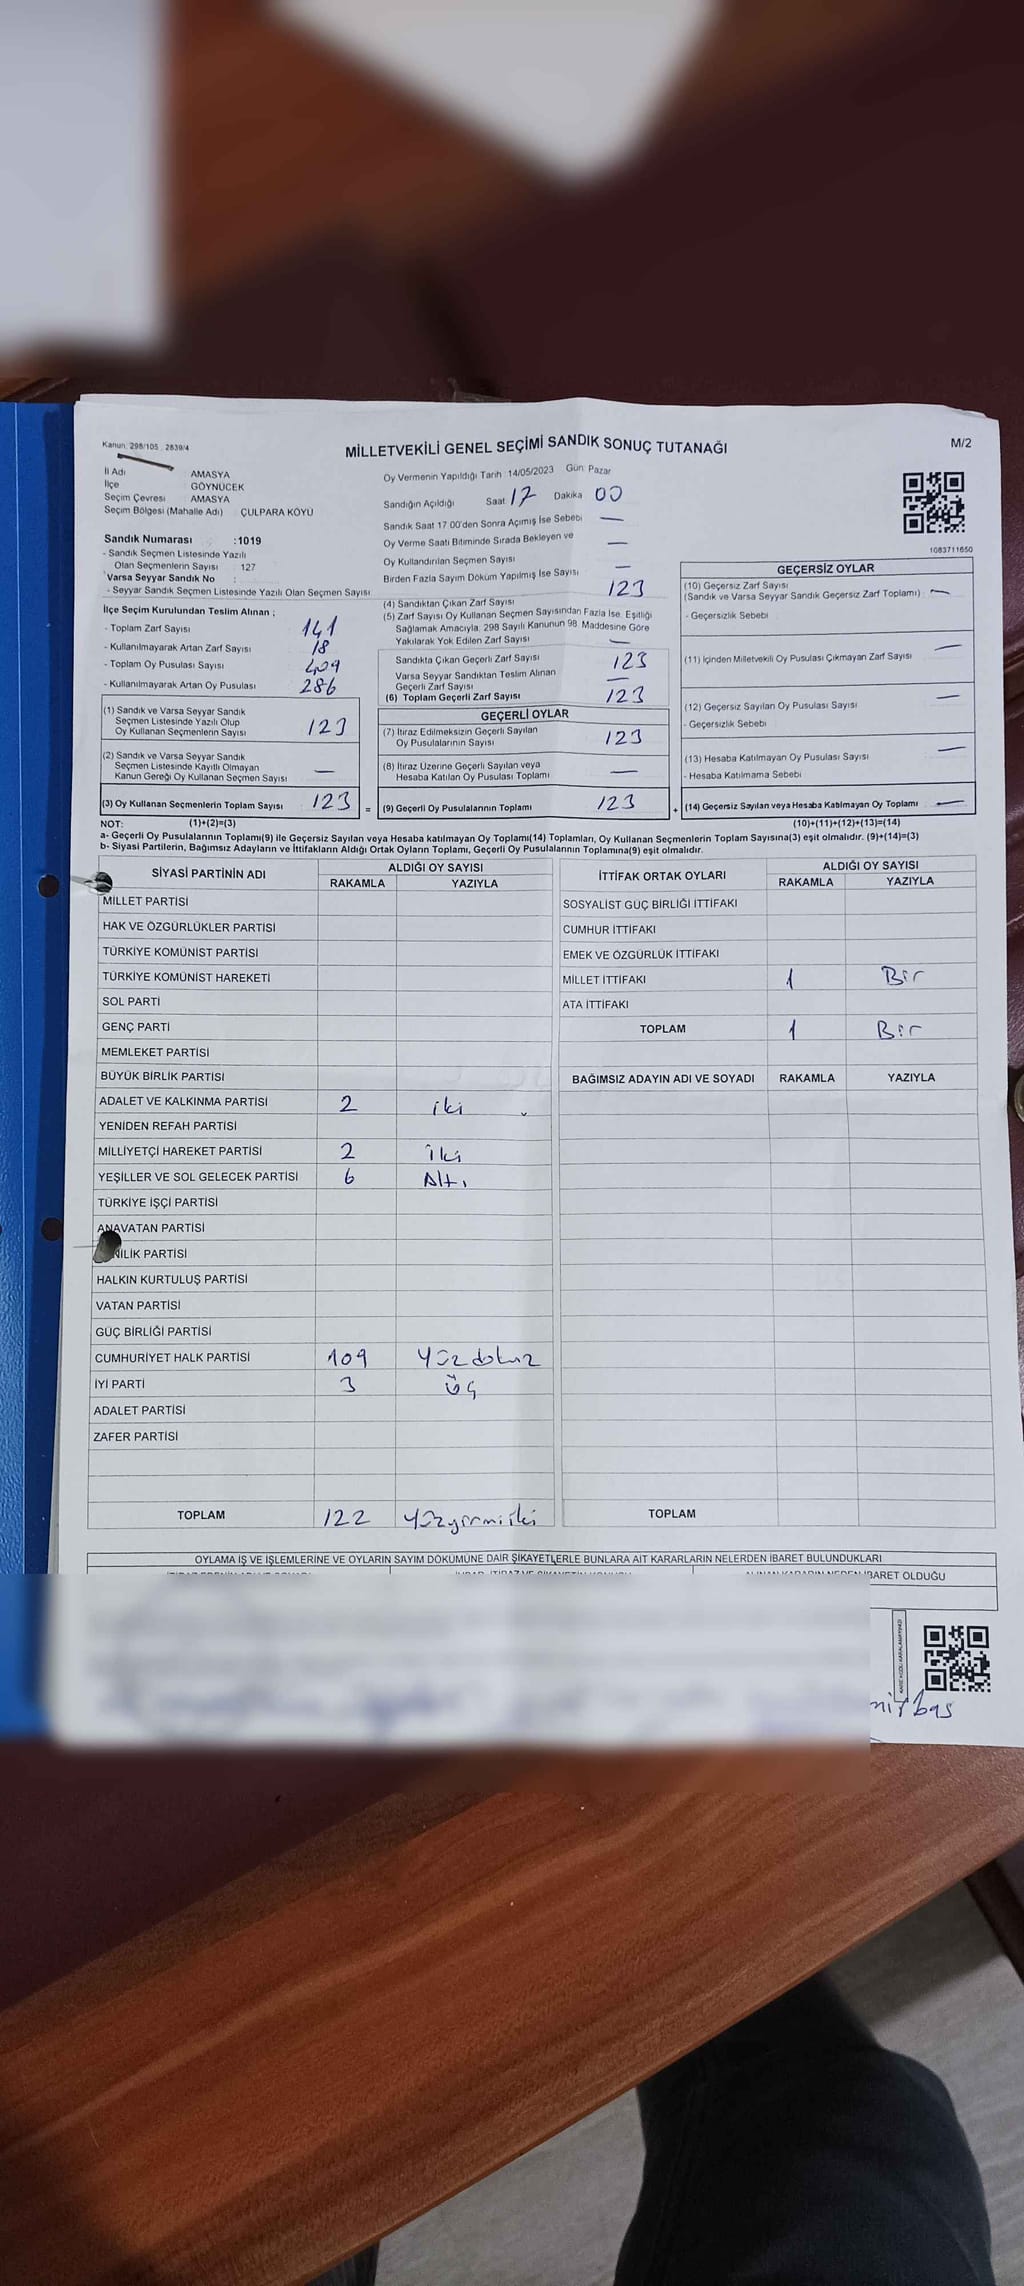 Kanun: 298/105 2839/4
MİLLETVEKİLİ GENEL SEÇİMİ SANDIK SONUÇ TUTANAĞI
M/2
İl Adı AMASYA
İlçe GÖYNÜCEK
Seçim Çevresi AMASYA
Seçim Bölgesi (Mahalle Adı) ÇULPARA KÖYÜ
Sandık Numarası :1019
- Sandık Seçmen Listesinde Yazılı
Olan Seçmenlerin Sayısı : 127
Varsa Seyyar Sandık No :
- Seyyar Sandık Seçmen Listesinde Yazılı Olan Seçmen Sayısı
İlçe Seçim Kurulundan Teslim Alınan ;
- Toplam Zarf Sayısı 141
- Kullanılmayarak Artan Zarf Sayısı 18
- Toplam Oy Pusulası Sayısı 409
- Kullanılmayarak Artan Oy Pusulası 286
(1) Sandık ve Varsa Seyyar Sandık
Seçmen Listesinde Yazılı Olup
Oy Kullanan Seçmenlerin Sayısı 123
(2) Sandık ve Varsa Seyyar Sandık
Seçmen Listesinde Kayıtlı Olmayan
Kanun Gereği Oy Kullanan Seçmen Sayısı —
(3) Oy Kullanan Seçmenlerin Toplam Sayısı 123 =
Oy Vermenin Yapıldığı Tarih : 14/05/2023 Gün: Pazar
Sandığın Açıldığı Saat 17 Dakika 00
Sandık Saat 17.00'den Sonra Açımış İse Sebebi —
Oy Verme Saati Bitiminde Sırada Bekleyen ve
Oy Kullandırılan Seçmen Sayısı —
Birden Fazla Sayım Döküm Yapılmış İse Sayısı —
(4) Sandıktan Çıkan Zarf Sayısı 123
(5) Zarf Sayısı Oy Kullanan Seçmen Sayısından Fazla İse, Eşitliği
Sağlamak Amacıyla, 298 Sayılı Kanunun 98. Maddesine Göre
Yakılarak Yok Edilen Zarf Sayısı —
Sandıkta Çıkan Geçerli Zarf Sayısı 123
Varsa Seyyar Sandıktan Teslim Alınan
Geçerli Zarf Sayısı —
(6) Toplam Geçerli Zarf Sayısı 123
GEÇERLİ OYLAR
(7) İtiraz Edilmeksizin Geçerli Sayılan
Oy Pusulalarının Sayısı 123
(8) İtiraz Üzerine Geçerli Sayılan veya
Hesaba Katılan Oy Pusulası Toplamı —
(9) Geçerli Oy Pusulalarının Toplamı 123 +
1083711650
GEÇERSİZ OYLAR
(10) Geçersiz Zarf Sayısı
(Sandık ve Varsa Seyyar Sandık Geçersiz Zarf Toplamı) : —
- Geçersizlik Sebebi
(11) İçinden Milletvekili Oy Pusulası Çıkmayan Zarf Sayısı —
(12) Geçersiz Sayılan Oy Pusulası Sayısı —
- Geçersizlik Sebebi
(13) Hesaba Katılmayan Oy Pusulası Sayısı —
- Hesaba Katılmama Sebebi
(14) Geçersiz Sayılan veya Hesaba Katılmayan Oy Toplamı —
NOT: (1)+(2)=(3) (10)+(11)+(12)+(13)=(14)
a- Geçerli Oy Pusulalarının Toplamı(9) ile Geçersiz Sayılan veya Hesaba katılmayan Oy Toplamı(14) Toplamları, Oy Kullanan Seçmenlerin Toplam Sayısına(3) eşit olmalıdır. (9)+(14)=(3)
b- Siyasi Partilerin, Bağımsız Adayların ve İttifakların Aldığı Ortak Oyların Toplamı, Geçerli Oy Pusulalarının Toplamına(9) eşit olmalıdır.
SİYASİ PARTİNİN ADI ALDIĞI OY SAYISI
RAKAMLA YAZIYLA
MİLLET PARTİSİ
HAK VE ÖZGÜRLÜKLER PARTİSİ
TÜRKİYE KOMÜNİST PARTİSİ
TÜRKİYE KOMÜNİST HAREKETİ
SOL PARTİ
GENÇ PARTİ
MEMLEKET PARTİSİ
BÜYÜK BİRLİK PARTİSİ
ADALET VE KALKINMA PARTİSİ 2 iki
YENİDEN REFAH PARTİSİ
MİLLİYETÇİ HAREKET PARTİSİ 2 İki
YEŞİLLER VE SOL GELECEK PARTİSİ 6 Altı
TÜRKİYE İŞÇİ PARTİSİ
ANAVATAN PARTİSİ
NİLİK PARTİSİ
HALKIN KURTULUŞ PARTİSİ
VATAN PARTİSİ
GÜÇ BİRLİĞİ PARTİSİ
CUMHURİYET HALK PARTİSİ 109 Yüzdokuz
İYİ PARTİ 3 üç
ADALET PARTİSİ
ZAFER PARTİSİ
TOPLAM 122 Yüzyirmiiki
İTTİFAK ORTAK OYLARI ALDIĞI OY SAYISI
RAKAMLA YAZIYLA
SOSYALİST GÜÇ BİRLİĞİ İTTİFAKI
CUMHUR İTTİFAKI
EMEK VE ÖZGÜRLÜK İTTİFAKI
MİLLET İTTİFAKI 1 Bir
ATA İTTİFAKI
TOPLAM 1 Bir
BAĞIMSIZ ADAYIN ADI VE SOYADI RAKAMLA YAZIYLA
TOPLAM
OYLAMA İŞ VE İŞLEMLERİNE VE OYLARIN SAYIM DÖKÜMÜNE DAİR ŞİKAYETLERLE BUNLARA AİT KARARLARIN NELERDEN İBARET BULUNDUKLARI
İBARET OLDUĞU
KARE KODU KARALAMAYINIZ!